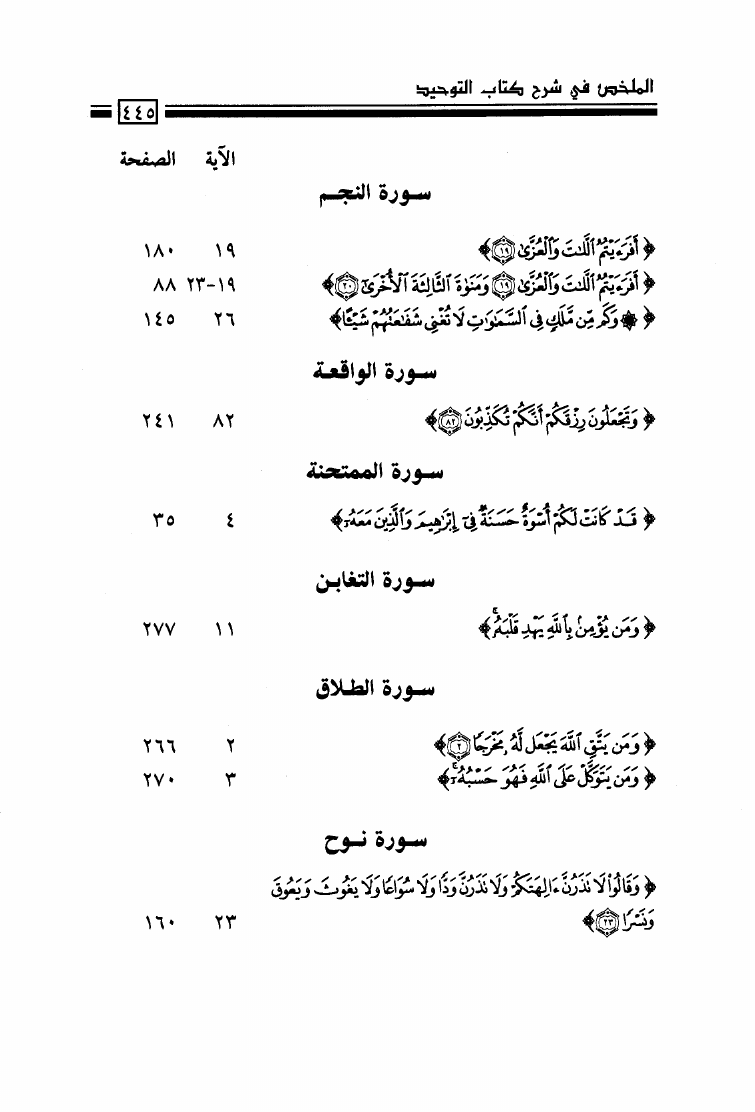 الملخص في شرح كتاب التوحيد
٤٤٥
الآية الصفحة
سورة النجم
﴿ أَفَرَءَيْتُمُ ٱللَّٰتَ وَٱلْعُزَّىٰ ١٩﴾ ١٩ ١٨٠
﴿ أَفَرَءَيْتُمُ ٱللَّٰتَ وَٱلْعُزَّىٰ ١٩ وَمَنَوٰةَ ٱلثَّالِثَةَ ٱلْأُخْرَىٰٓ ٢٠﴾ ١٩-٢٣ ٨٨
﴿ ۞ وَكَم مِّن مَّلَكٍ فِى ٱلسَّمَٰوَٰتِ لَا تُغْنِى شَفَٰعَتُهُمْ شَيْـًٔا﴾ ٢٦ ١٤٥
سورة الواقعة
﴿ وَتَجْعَلُونَ رِزْقَكُمْ أَنَّكُمْ تُكَذِّبُونَ ٨٢﴾ ٨٢ ٢٤١
سورة الممتحنة
﴿ قَدْ كَانَتْ لَكُمْ أُسْوَةٌ حَسَنَةٌ فِىٓ إِبْرَٰهِيمَ وَٱلَّذِينَ مَعَهُۥٓ﴾ ٤ ٣٥
سورة التغابن
﴿ وَمَن يُؤْمِنۢ بِٱللَّهِ يَهْدِ قَلْبَهُۥۚ﴾ ١١ ٢٧٧
سورة الطلاق
﴿ وَمَن يَتَّقِ ٱللَّهَ يَجْعَل لَّهُۥ مَخْرَجًا ٢﴾ ٢ ٢٦٦
﴿ وَمَن يَتَوَكَّلْ عَلَى ٱللَّهِ فَهُوَ حَسْبُهُۥٓۚ﴾ ٣ ٢٧٠
سورة نوح
﴿ وَقَالُوا۟ لَا تَذَرُنَّ ءَالِهَتَكُمْ وَلَا تَذَرُنَّ وَدًّا وَلَا سُوَاعًا وَلَا يَغُوثَ وَيَعُوقَ
وَنَسْرًا ٢٣﴾ ٢٣ ١٦٠